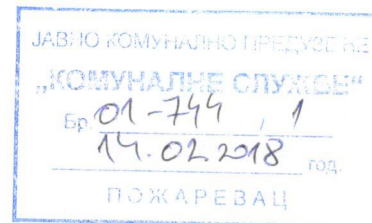 ЈАВНО КОМУНАЛНО ПРЕДУЗЕЋЕ
„КОМУНАЛНЕ СЛУЖБЕ“
Бр. 01-744 / 1
14.02.2018 год.
ПОЖАРЕВАЦ